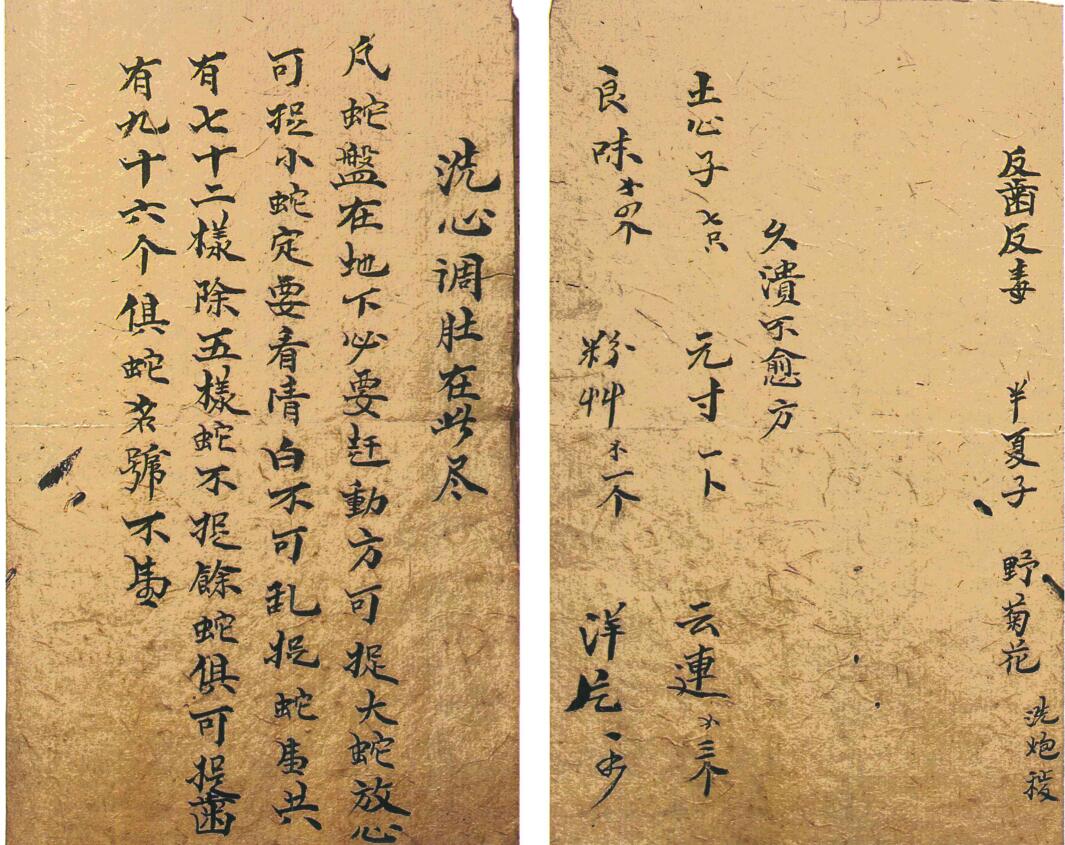 反齒反毒 半夏子 野菊花 洗炮
久潰不愈方
土心子 七只 元寸一卜 云連 三个
良味 个 粉艸 一个 洋片
洗心调肚在此尽
凡蛇盤在地下必要赶動方可捉大蛇放心
可捉小蛇定要看清白不可乱捉蛇 共
有七十二樣除五樣蛇不捉餘蛇俱可捉齒
有九十六个俱蛇名號不